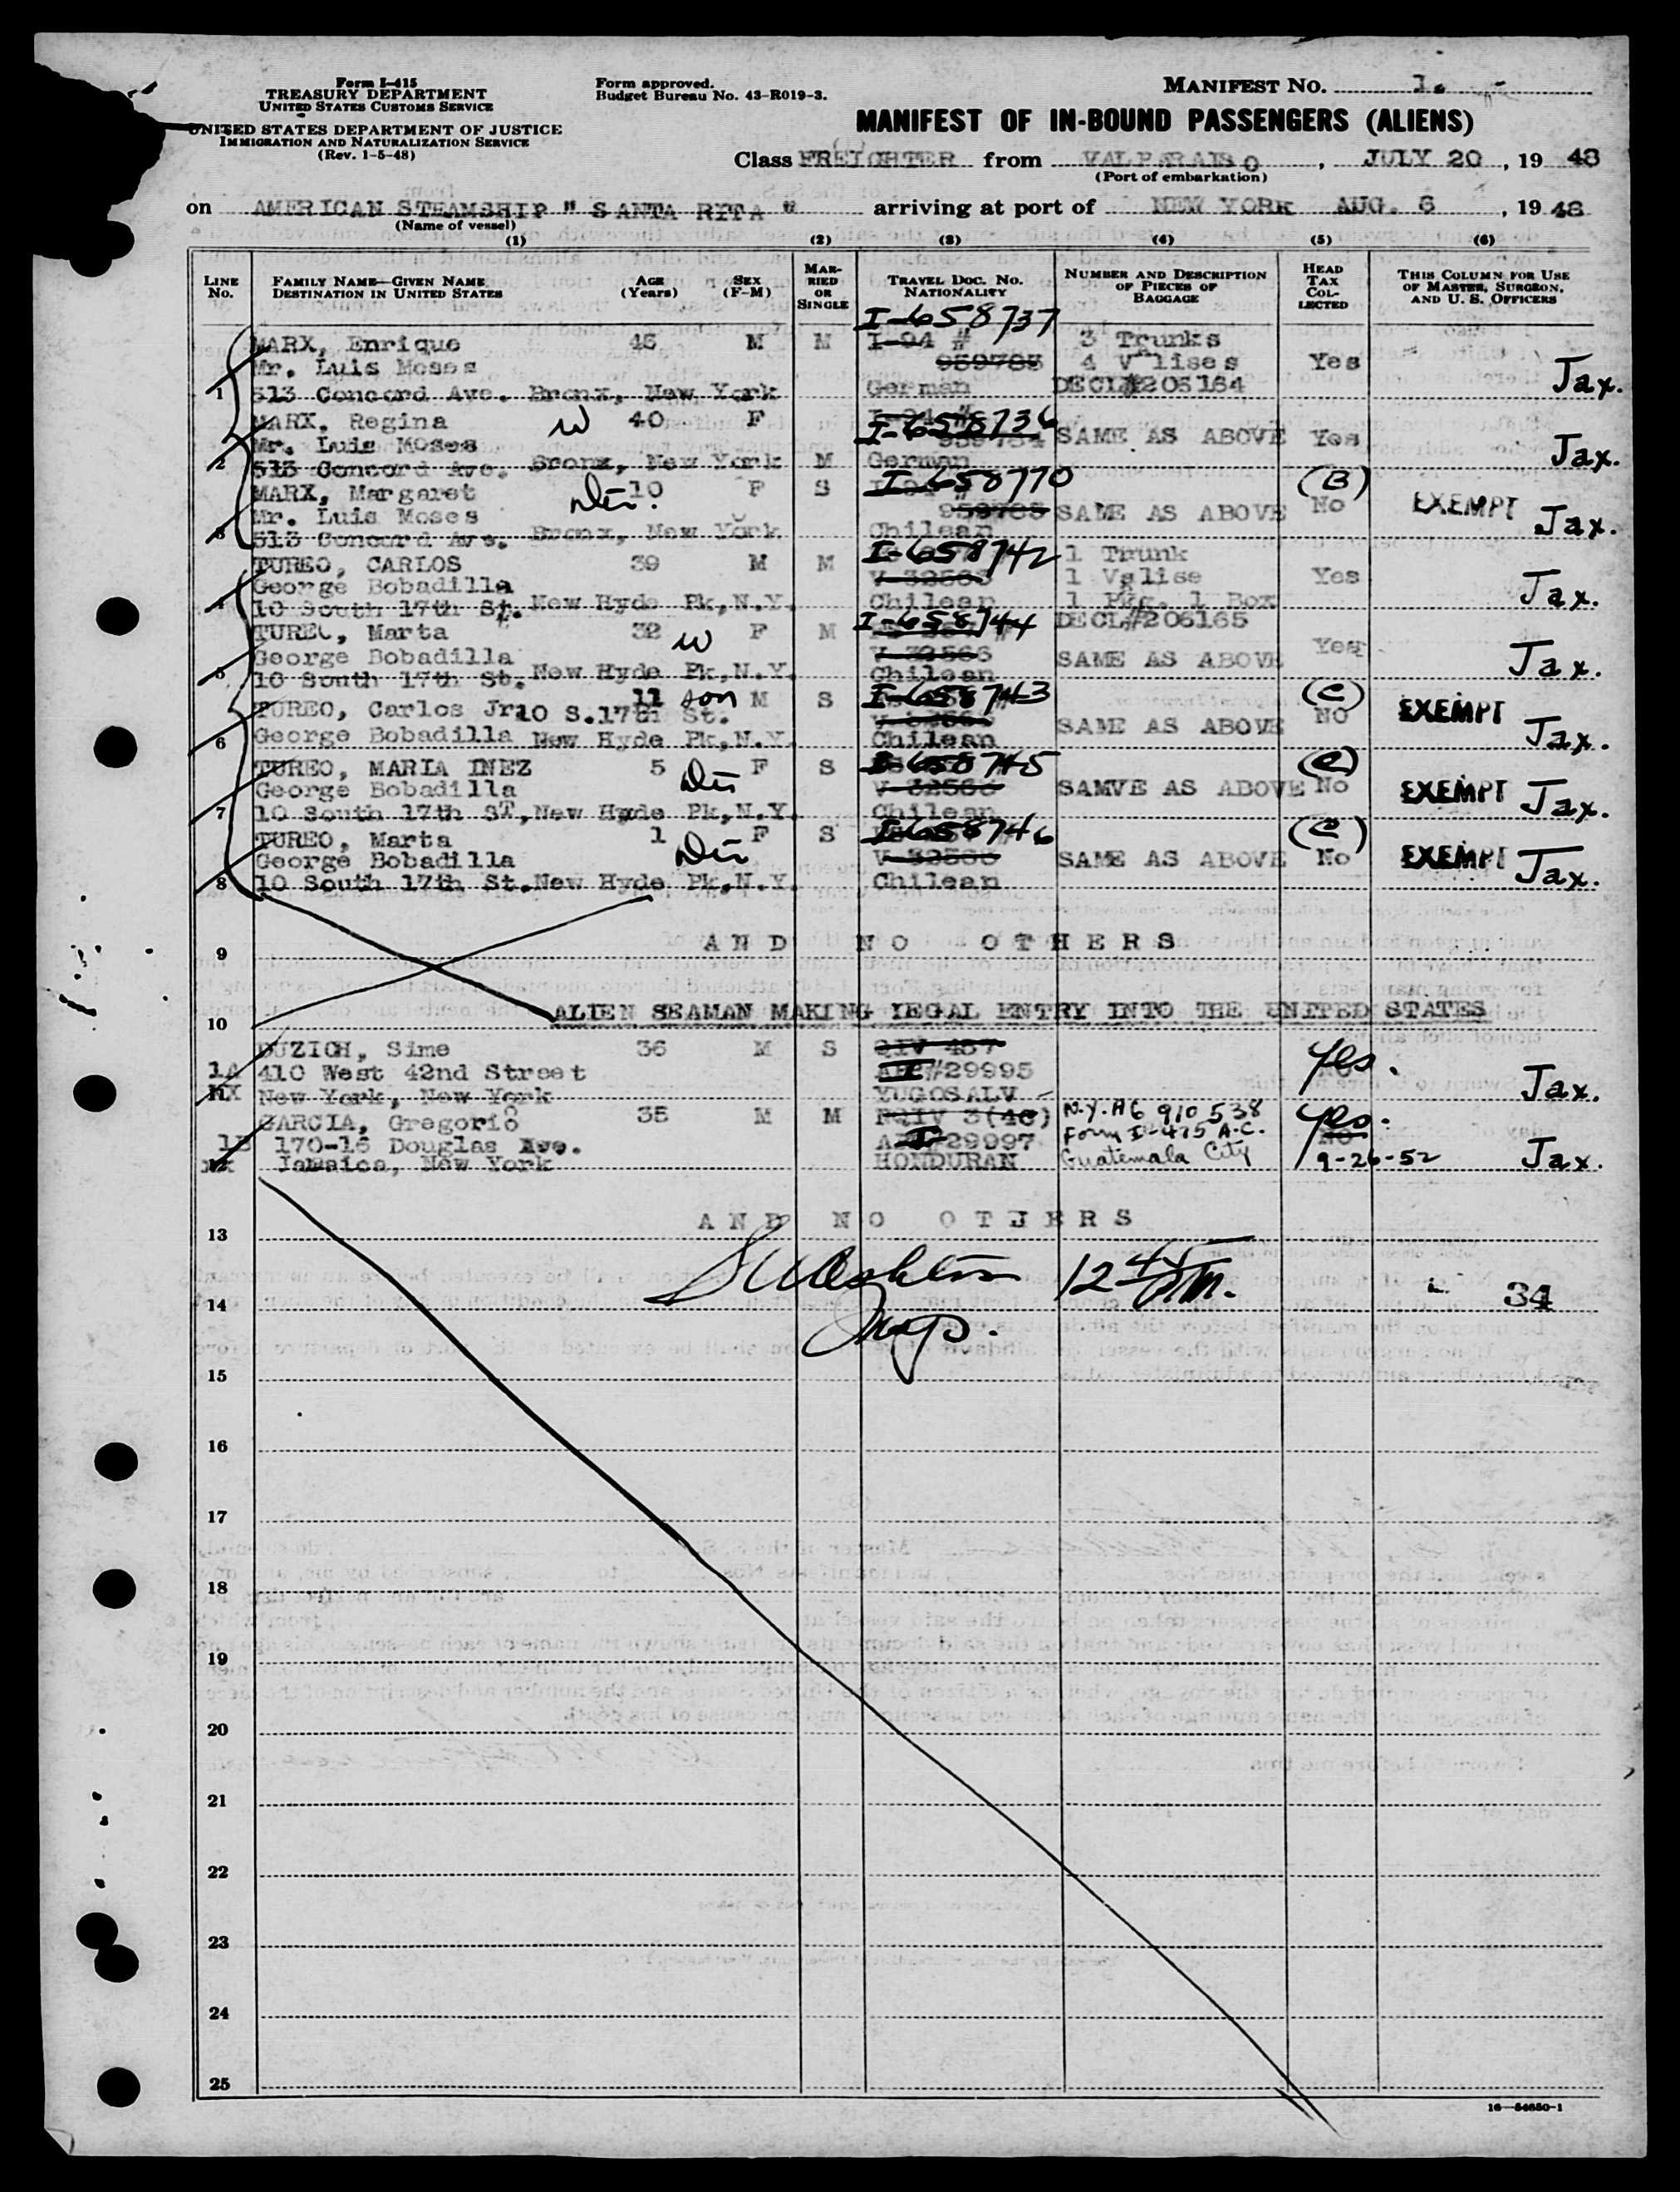 Form I-415
TREASURY DEPARTMENT
UNITED STATES CUSTOMS SERVICE
UNITED STATES DEPARTMENT OF JUSTICE
IMMIGRATION AND NATURALIZATION SERVICE
(Rev. 1-5-48)
Form approved.
Budget Bureau No. 43-R019-3.
MANIFEST NO. 1.
MANIFEST OF IN-BOUND PASSENGERS (ALIENS)
Class FREIGHTER from VALPARAISO, JULY 20, 1948
(Port of embarkation)
on AMERICAN STEAMSHIP " SANTA RITA " arriving at port of NEW YORK AUG. 6, 1948
(Name of vessel)
(1) (2) (3) (4) (5) (6)
LINE No. FAMILY NAME—GIVEN NAME DESTINATION IN UNITED STATES AGE (Years) SEX (F-M) MARRIED OR SINGLE TRAVEL DOC. NO. NATIONALITY NUMBER AND DESCRIPTION OF PIECES OF BAGGAGE HEAD TAX COLLECTED THIS COLUMN FOR USE OF MASTER, SURGEON, AND U. S. OFFICERS
I-658737
MARX, Enrique 46 M M I-94 # 3 Trunks
Mr. Luis Moses 959785 4 Valises Yes
1 513 Concord Ave. Bronx, New York German DECL#206164 Jax.
MARX, Regina w 40 F I-658736
Mr. Luis Moses SAME AS ABOVE Yes
2 513 Concord Ave. Bronx, New York M German Jax.
MARX, Margaret 10 F S I-658770 (B)
Mr. Luis Moses SAME AS ABOVE No EXEMPT
3 513 Concord Ave. Bronx, New York Chilean Jax.
TUREO, CARLOS 39 M M I-658742 1 Trunk
George Bobadilla 1 Valise Yes
4 10 South 17th St. New Hyde Pk,N.Y. Chilean 1 Pkg. 1 Box Jax.
TUREO, Marta 32 w F M I-658744 DECL#206165
George Bobadilla V-32566 SAME AS ABOVE Yes
5 10 South 17th St. New Hyde Pk,N.Y. Chilean Jax.
TUREO, Carlos Jr. 11 son M S I-658743 (C)
10 S.17th St. SAME AS ABOVE NO EXEMPT
6 George Bobadilla New Hyde Pk,N.Y. Chilean Jax.
TUREO, MARIA INEZ 5 F S I-658745 (C)
George Bobadilla V-32566 SAMVE AS ABOVE No EXEMPT
7 10 South 17th ST,New Hyde Pk,N.Y. Chilean Jax.
TUREO, Marta 1 F S I-658746 (C)
George Bobadilla V-32566 SAME AS ABOVE No EXEMPT
8 10 South 17th St.New Hyde Pk,N.Y. Chilean Jax.
9 A N D N O O T H E R S
10 ALIEN SEAMAN MAKING LEGAL ENTRY INTO THE UNITED STATES
DUZICH, Sime 36 M S QIV 457
1A 410 West 42nd Street #29995 Yes.
New York, New York YUGOSALV Jax.
GARCIA, Gregorio 35 M M 3(46) N.Y. A6 910 538 Yes.
1B 170-16 Douglas Ave. 29997 Form I-475 A.C.
Jamaica, New York HONDURAN Guatemala City 9-26-52 Jax.
13 A N D N O O T J E R S
12 45 PM.
14 34
15
16
17
18
19
20
21
22
23
24
25
16—54650-1